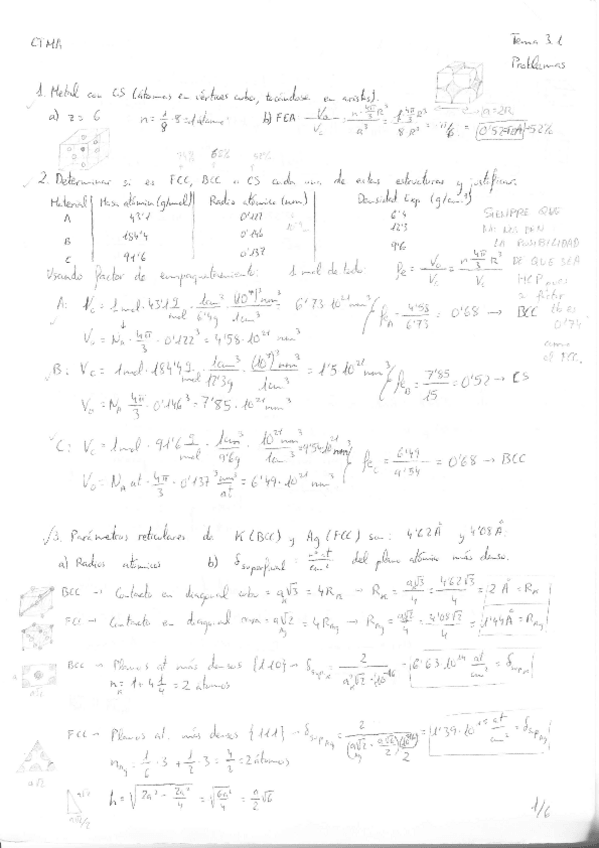 CTMA
Tema 3.1
Problemas
1. Metal con CS (átomos en vértices cubo, tocándose en aristas).
a) z = 6   n = 1/8 · 8 = 1 átomo   b) FEA
a = 2R
52%
2. Determinar si es FCC, BCC o CS cada una de estas estructuras y justificar.
Material | Masa atómica (g/mol) | Radio atómico (nm) | Densidad Exp. (g/cm³)
A 43'1 0'122 6'4
B 184'4 0'146 12'3
C 91'6 0'137 9'6
SIEMPRE QUE
NO NOS DEN
LA POSIBILIDAD
DE QUE SEA
HCP
factor
0'74
como
el FCC.
Usando factor de empaquetamiento: 1 mol de todo:
A: Vc = 1 mol · 43'1 g/mol · 1cm³/6'4g · (10⁷)³ nm³/1cm³ = 6'73·10²¹ nm³
f_A = 4'58/6'73 = 0'68 → BCC
V₀ = N_A · 4π/3 · 0'122³ = 4'58·10²¹ nm³
B: Vc = 1mol · 184'4 g/mol · 1cm³/12'3g · (10⁷)³ nm³/1cm³ = 1'5 10²² nm³
f_B = 7'85/15 = 0'52 → CS
V₀ = N_A 4π/3 · 0'146³ = 7'85·10²¹ nm³
C: Vc = 1mol · 91'6 g/mol · 1cm³/9'6g · 10²¹ nm³/1cm³ = 9'54·10²¹ nm³
f_C = 6'49/9'54 = 0'68 → BCC
V₀ = N_A at · 4π/3 · 0'137³ nm³/at = 6'49·10²¹ nm³
3. Parámetros reticulares de K (BCC) y Ag (FCC) son: 4'62Å y 4'08Å:
a) Radios atómicos   b) δ superficial = nº at/cm² del plano atómico más denso.
BCC → Contacto en diagonal cubo = a√3 = 4R_K → R_K = a√3/4 = 4'62√3/4 = 2 Å = R_K
FCC → Contacto en diagonal cara = a√2 = 4R_Ag → R_Ag = a√2/4 = 4'08√2/4 = 1'44Å = R_Ag
BCC → Planos at más densos {110} → δ_sup K = 2/a²√2·10⁻¹⁶ = 6'63·10¹⁴ at/cm² = δ_sup K
n = 1 + 4 1/4 = 2 átomos
FCC → Planos at. más densos {111} → δ_sup Ag = 1'39·10¹⁵ at/cm² = δ_sup Ag
n_Ag = 1/6 · 3 + 1/2 · 3 = 4/2 = 2 átomos
h = √(2a² − 2a²/4) = √(6a²/4) = a/2 √6
a√2
a√2
a√2/2
1/6